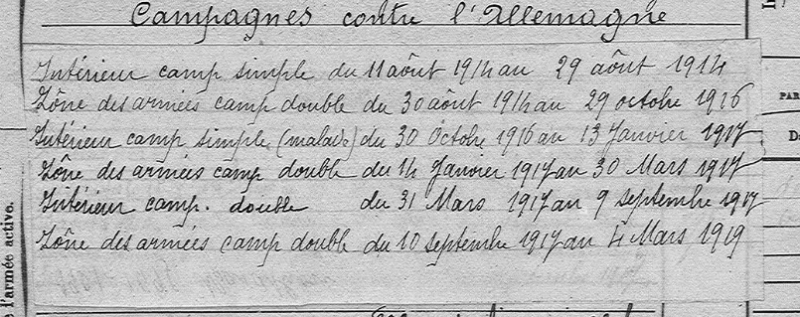 Campagnes contre l'Allemagne
Intérieur camp simple du 11 aôut 1914 au 29 aôut 1914
Zône des armées camp double du 30 aôut 1914 au 29 octobre 1916
Intérieur camp simple (malade) du 30 Octobre 1916 au 13 Janvier 1917
Zône des armées camp double du 14 Janvier 1917 au 30 Mars 1917
Intérieur camp. double du 31 Mars 1917 au 9 septembre 1917
Zône des armées camp double du 10 septembre 1917 au 4 Mars 1919
PAR
D
e l'armée active.